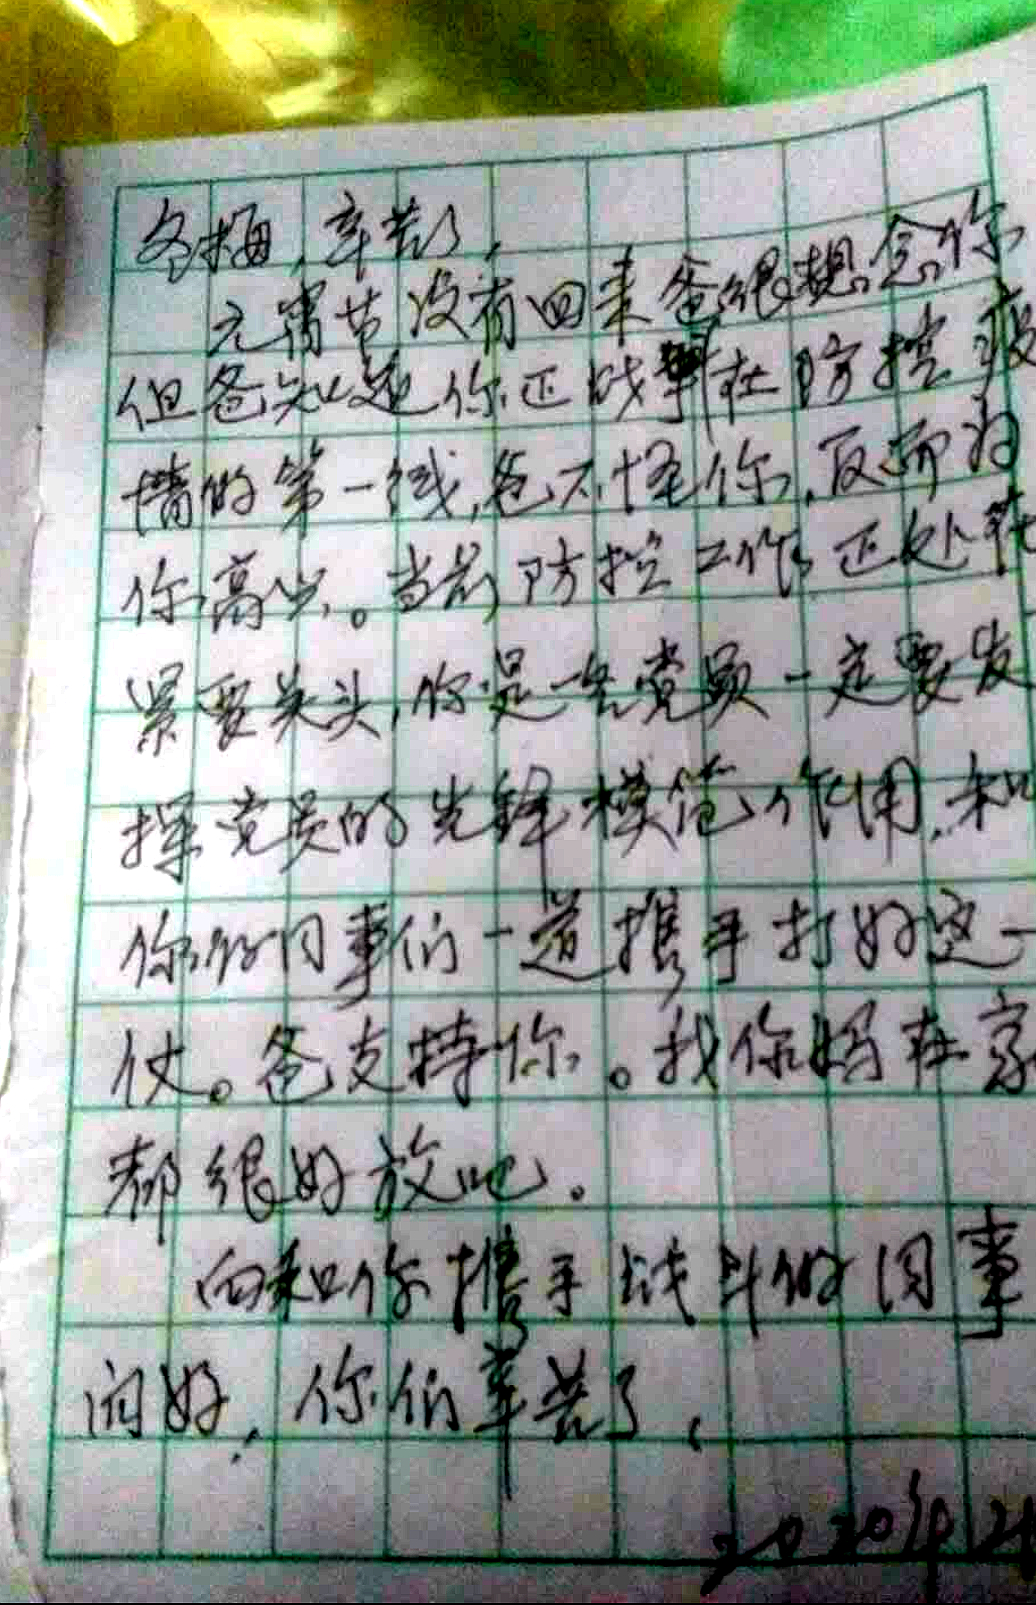 冬梅，辛苦了，
元宵节没有回来爸很想念你
但爸知道你正战斗在防控疫
情的第一线，爸不怪你，反而为
你高兴。当前防控工作正处在
紧要关头，你是一名党员一定要发
挥党员的先锋模范作用，和
你的同事们一道携手打好这一
仗。爸支持你。我你妈在家
都很好放吧。
向和你携手战斗的同事
问好，你们辛苦了，
2020年2